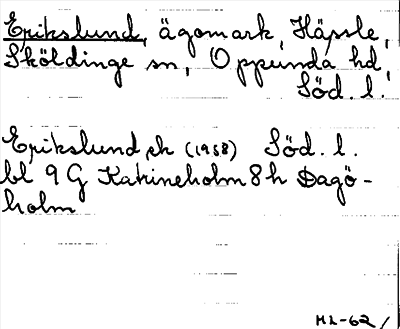 Erikslund, ägomark, Häpsle,
Sköldinge sn, Oppunda hd,
Söd. l.
Erikslund, ek (1958) Söd. l.
bl 9 G Katrineholm 8 h Dagö-
holm
HL-62